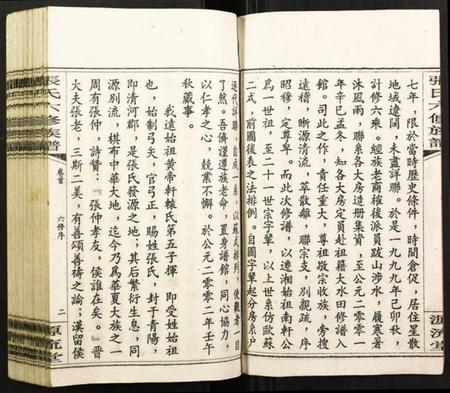 張氏六修族譜
七年,限於當時歷史條件,時間倉促,居住星散
地域遼闊,未盡詳聯。於是一九九九年己卯秋,
計修六乘。經族老商榷後派員跋山涉水,履寒暑
沐風雨,聯系各大房造册集資,至公元二〇〇一
年辛巳孟冬,知各大房定員赴祖籍大水田修譜入
館。司此之作,責任重大,尊祖敬宗收族,旁搜
遠稽,晰源清流,萃散離,聯宗支,别親疏,序
昭穆,定尊卑。而此次修譜,以遷湘始祖南軒公
為一世祖,至二十一世宗字輩,以上世系仿歐蘇
二式,前圖後表之法排例。自國字輩起分房系戶
逐代詳聯,自成一系,以蘇式排列,使觀者一目
了然。吾儕謹遵族老命,置身譜館,同心協力,
以仁孝之心,兢業不懈。於公元二〇〇二年壬午
秋蕆事。
我遠始祖黃帝軒轅氏第五子揮,即受姓始祖
也,始制弓矢,官弓正,賜姓張氏,封于青陽
即清河郡,是張氏發源之地;其后繁衍生息,同
源別流,棋布中華大地,迄今乃為華夏大族之一
周有張仲,詩贊:『張仲孝友,侯誰在矣。』晋
大夫張老,三斯二美,有善頌善禱之論;漢留侯
張氏六修族譜
卷首
六修序
二